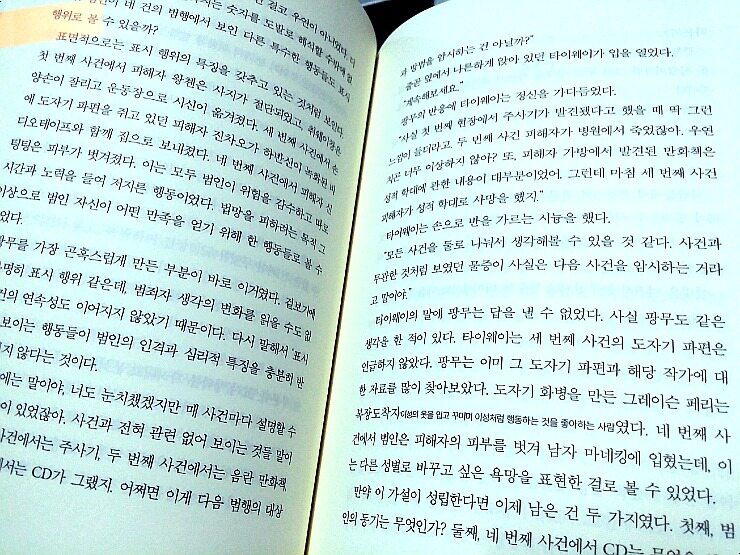 네 건의 범행에서 보인 다른 특수한 행동들도 표시
행위로 볼 수 있을까?
표면적으로는 표시 행위의 특징을 갖추고 있는 것처럼 보였다.
첫 번째 사건에서 피해자 왕첸은 사지가 절단되었고, 취웨이창은
양손이 잘리고 운동장으로 시신이 옮겨졌다. 세 번째 사건에서 손
에 도자기 파편을 쥐고 있던 피해자 진차오가 하반신이 녹화된 비
디오테이프와 함께 집으로 보내졌다. 네 번째 사건에서 피해자 신
팅팅은 피부가 벗겨졌다. 이는 모두 범인이 위험을 감수하고 따로
시간과 노력을 들여 저지른 행동이었다. 법망을 피하려는 목적 그
이상으로 범인 자신이 어떤 만족을 얻기 위해 한 행동들로 볼 수
었다.
팡무를 가장 곤혹스럽게 만든 부분이 바로 이거였다. 겉보기에
분명히 표시 행위 같은데, 범죄자 생각의 변화를 읽을 수도 없
건의 연속성도 이어지지 않았기 때문이다. 다시 말해서 '표시
보이는 행동들이 범인의 인격과 심리적 특징을 충분히 반
지 않다는 것이다.
에는 말이야, 너도 눈치챘겠지만 매 사건마다 설명할 수
이 있었잖아. 사건과 전혀 관련 없어 보이는 것들 말이
사건에서는 주사기, 두 번째 사건에서는 음란 만화책,
에서는 CD가 그랬지. 어쩌면 이게 다음 범행의 대상
과 방법을 암시하는 건 아닐까?"
줄곧 옆에서 나른하게 앉아 있던 타이웨이가 입을 열었다.
"계속해보세요."
팡무의 반응에 타이웨이는 정신을 가다듬었다.
"사실 첫 번째 현장에서 주사기가 발견됐다고 했을 때 딱 그런
느낌이 들더라고. 두 번째 사건 피해자가 병원에서 죽었잖아. 우연
치곤 너무 이상하지 않아? 또, 피해자 가방에서 발견된 만화책은
성적 학대에 관한 내용이 대부분이었어. 그런데 마침 세 번째 사건
피해자가 성적 학대로 사망을 했지."
타이웨이는 손으로 반을 가르는 시늉을 했다.
"모든 사건을 둘로 나눠서 생각해볼 수 있을 것 같다. 사건과
무관한 것처럼 보였던 물증이 사실은 다음 사건을 암시하는 거라
고 말이야."
타이웨이의 말에 팡무는 답을 낼 수 없었다. 사실 팡무도 같은
생각을 한 적이 있다. 타이웨이는 세 번째 사건의 도자기 파편은
언급하지 않았다. 팡무는 이미 그 도자기 파편과 해당 작가에 대
한 자료를 많이 찾아보았다. 도자기 화병을 만든 그레이슨 페리는
복장도착자이성의 옷을 입고 꾸미며 이상처럼 행동하는 것을 좋아하는 사람였다. 네 번째 사
건에서 범인은 피해자의 피부를 벗겨 남자 마네킹에 입혔는데, 이
는 다른 성별로 바꾸고 싶은 욕망을 표현한 걸로 볼 수 있었다.
만약 이 가설이 성립한다면 이제 남은 건 두 가지였다. 첫째, 범
인의 동기는 무엇인가? 둘째, 네 번째 사건에서 CD는